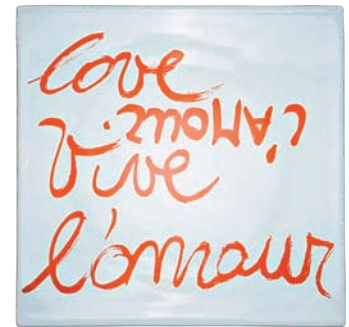 love
L'AMOUR.
Vive
l'amour